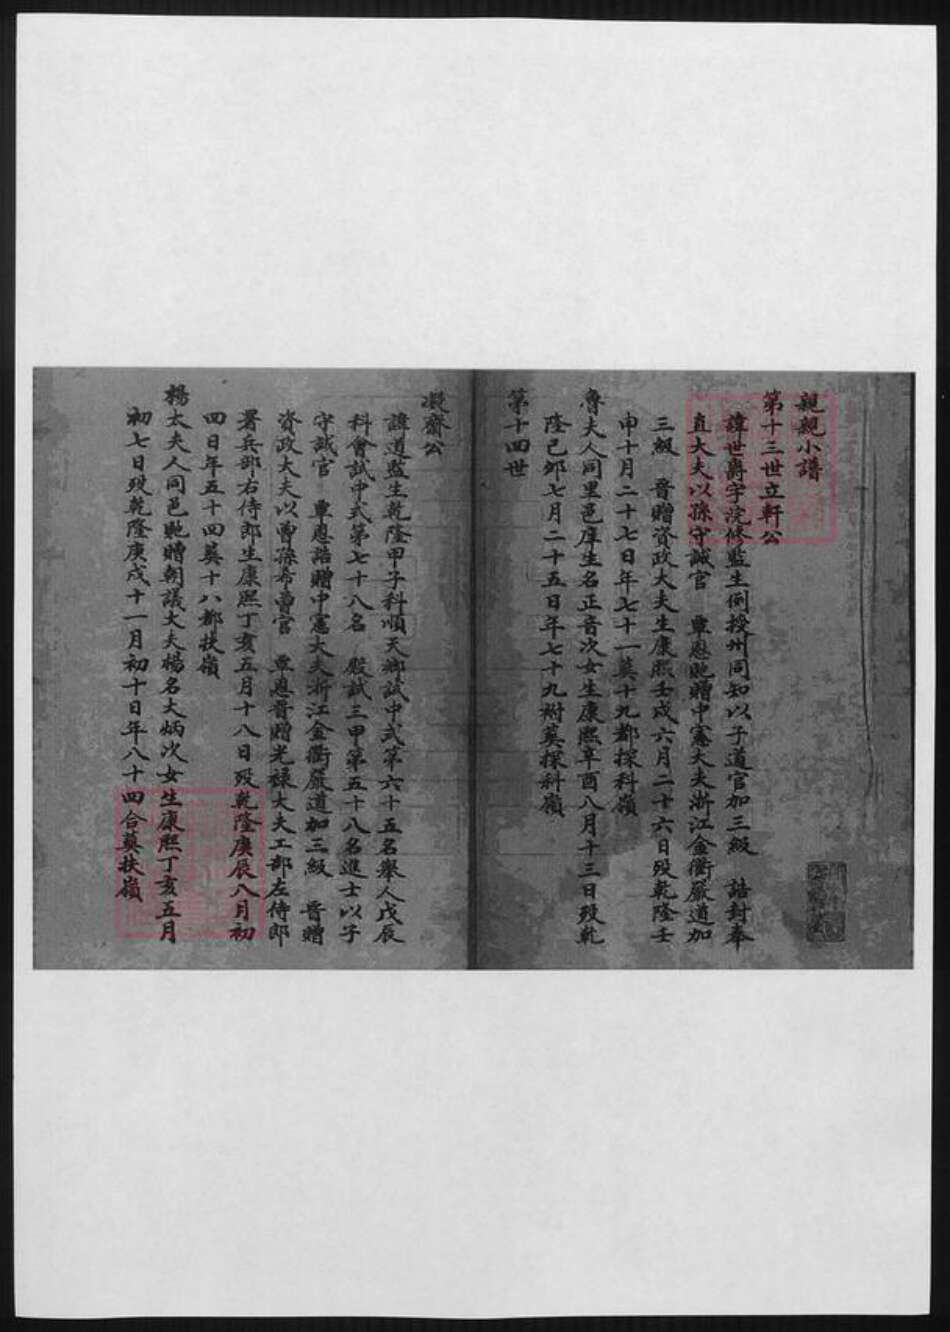 親親小譜
第十三世立軒公
諱世爵字院修監生例授州同知以子道官加三級 誥封奉
直大夫以孫守誠官 覃恩貤贈中憲大夫浙江金衢嚴道加
三級 晉贈資政大夫生康熙壬戌六月二十六日歿乾隆壬
申十月二十七日年七十一葬十九都探科嶺
魯夫人同里邑庠生名正音次女生康熙辛酉八月十三日歿乾
隆己卯七月二十五日年七十九祔葬探科嶺
第十四世
凝齋公
諱道監生乾隆甲子科順天鄉試中式第六十五名舉人戊辰
科會試中式第七十八名 殿試三甲第五十八名進士以子
守誠官 覃恩誥贈中憲大夫浙江金衢嚴道加三級 晉贈
資政大夫以曾孫希曾官 覃恩晉贈光祿大夫工部左侍郎
署兵部右侍郎生康熙丁亥五月十八日歿乾隆庚辰八月初
四日年五十四葬十八都扶嶺
楊太夫人同邑貤贈朝議大夫楊名大炳次女生康熙丁亥五月
初七日歿乾隆庚戌十一月初十日年八十四合葬扶嶺